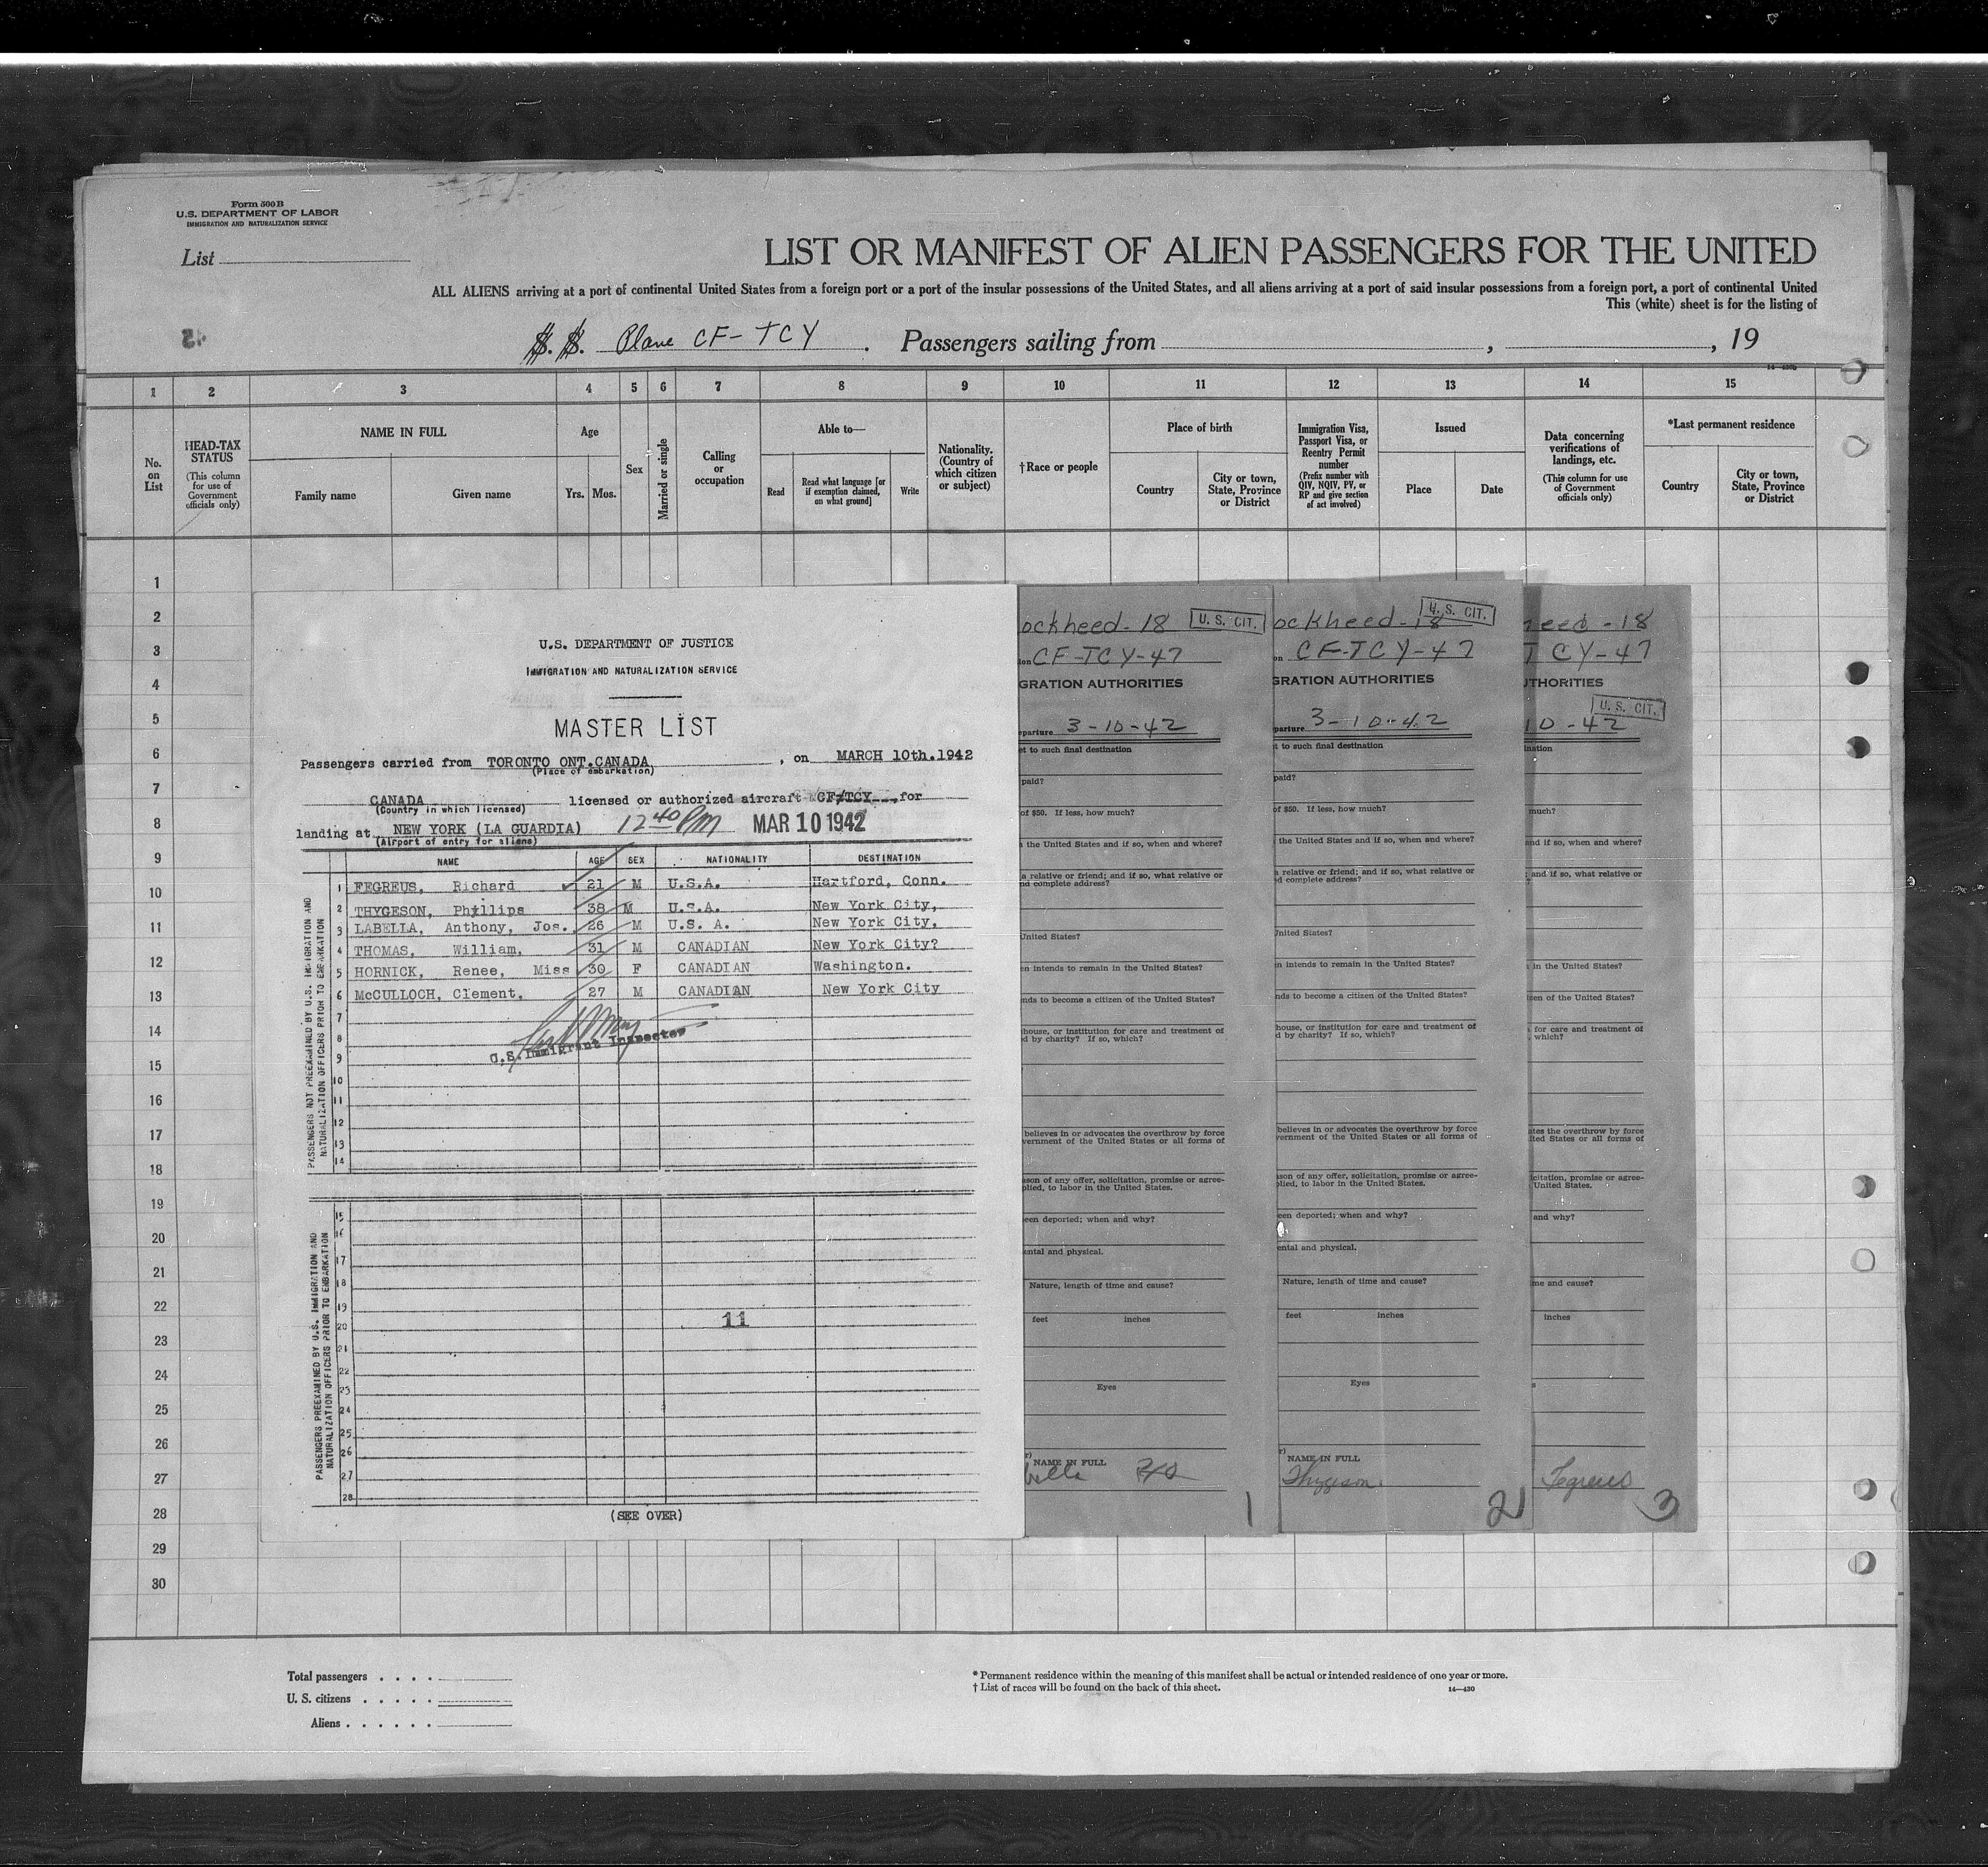 Form 500 B
U.S. DEPARTMENT OF LABOR
IMMIGRATION AND NATURALIZATION SERVICE
List
LIST OR MANIFEST OF ALIEN PASSENGERS FOR THE UNITED
ALL ALIENS arriving at a port of continental United States from a foreign port or a port of the insular possessions of the United States, and all aliens arriving at a port of said insular possessions from a foreign port, a port of continental United
This (white) sheet is for the listing of
S. S. Plane CF-TCY. Passengers sailing from , , 19
1 2 3 4 5 6 7 8 9 10 11 12 13 14 15
No. on List
HEAD-TAX STATUS
(This column for use of Government officials only)
NAME IN FULL
Family name Given name
Age
Yrs. Mos.
Sex
Married or single
Calling or occupation
Able to—
Read
Read what language [or if exemption claimed, on what ground]
Write
Nationality. (Country of which citizen or subject)
†Race or people
Place of birth
Country
City or town, State, Province or District
Immigration Visa, Passport Visa, or Reentry Permit number
(Prefix number with QIV, NQIV, PV, or RP and give section of act involved)
Issued
Place Date
Data concerning verifications of landings, etc.
(This column for use of Government officials only)
*Last permanent residence
Country
City or town, State, Province or District
1
2
3
4
5
6
7
8
9
10
11
12
13
14
15
16
17
18
19
20
21
22
23
24
25
26
27
28
29
30
U.S. DEPARTMENT OF JUSTICE
IMMIGRATION AND NATURALIZATION SERVICE
MASTER LIST
Passengers carried from TORONTO ONT.CANADA , on MARCH 10th.1942
(Place of embarkation)
CANADA licensed or authorized aircraft CF-TCY , for
(Country in which licensed)
landing at NEW YORK (LA GUARDIA) 12 40 PM MAR 10 1942
(Airport of entry for aliens)
NAME AGE SEX NATIONALITY DESTINATION
1 FEGREUS, Richard 21 M U.S.A. Hartford, Conn.
2 THYGESON, Phillips 38 M U.S.A. New York City,
3 LABELLA, Anthony, Jos. 26 M U.S. A. New York City,
4 THOMAS, William, 31 M CANADIAN New York City?
5 HORNICK, Renee, Miss 30 F CANADIAN Washington.
6 McCULLOCH, Clement, 27 M CANADIAN New York City
7
8
U.S. Immigrant Inspector
9
10
11
12
13
14
PASSENGERS NOT PREEXAMINED BY U.S. IMMIGRATION AND
NATURALIZATION OFFICERS PRIOR TO EMBARKATION
15
16
17
18
19
20
11
21
22
23
24
25
26
27
28
PASSENGERS PREEXAMINED BY U.S. IMMIGRATION AND
NATURALIZATION OFFICERS PRIOR TO EMBARKATION
(SEE OVER)
ockheed-18 U. S. CIT.
on CF-TCY-47
GRATION AUTHORITIES
parture 3-10-42
t to such final destination
paid?
of $50. If less, how much?
the United States and if so, when and where?
a relative or friend; and if so, what relative or
d complete address?
United States?
en intends to remain in the United States?
nds to become a citizen of the United States?
house, or institution for care and treatment of
d by charity? If so, which?
believes in or advocates the overthrow by force
vernment of the United States or all forms of
ason of any offer, solicitation, promise or agree-
plied, to labor in the United States.
een deported; when and why?
ental and physical.
Nature, length of time and cause?
feet inches
Eyes
r) NAME IN FULL
1
ockheed-18 U. S. CIT.
on CF-TCY-47
GRATION AUTHORITIES
parture 3-10-42
t to such final destination
paid?
of $50. If less, how much?
the United States and if so, when and where?
a relative or friend; and if so, what relative or
d complete address?
United States?
en intends to remain in the United States?
nds to become a citizen of the United States?
house, or institution for care and treatment of
d by charity? If so, which?
believes in or advocates the overthrow by force
vernment of the United States or all forms of
ason of any offer, solicitation, promise or agree-
plied, to labor in the United States.
een deported; when and why?
ental and physical.
Nature, length of time and cause?
feet inches
Eyes
r) NAME IN FULL
Thygeson
2
heed-18
TCY-47
THORITIES
U. S. CIT.
10-42
ination
much?
nd if so, when and where?
; and if so, what relative or
?
in the United States?
zen of the United States?
for care and treatment of
, which?
ates the overthrow by force
ited States or all forms of
icitation, promise or agree-
United States.
and why?
me and cause?
inches
s
Fegreus
3
Total passengers . . . .
U. S. citizens . . . . .
Aliens . . . . . .
* Permanent residence within the meaning of this manifest shall be actual or intended residence of one year or more.
† List of races will be found on the back of this sheet.
14—430